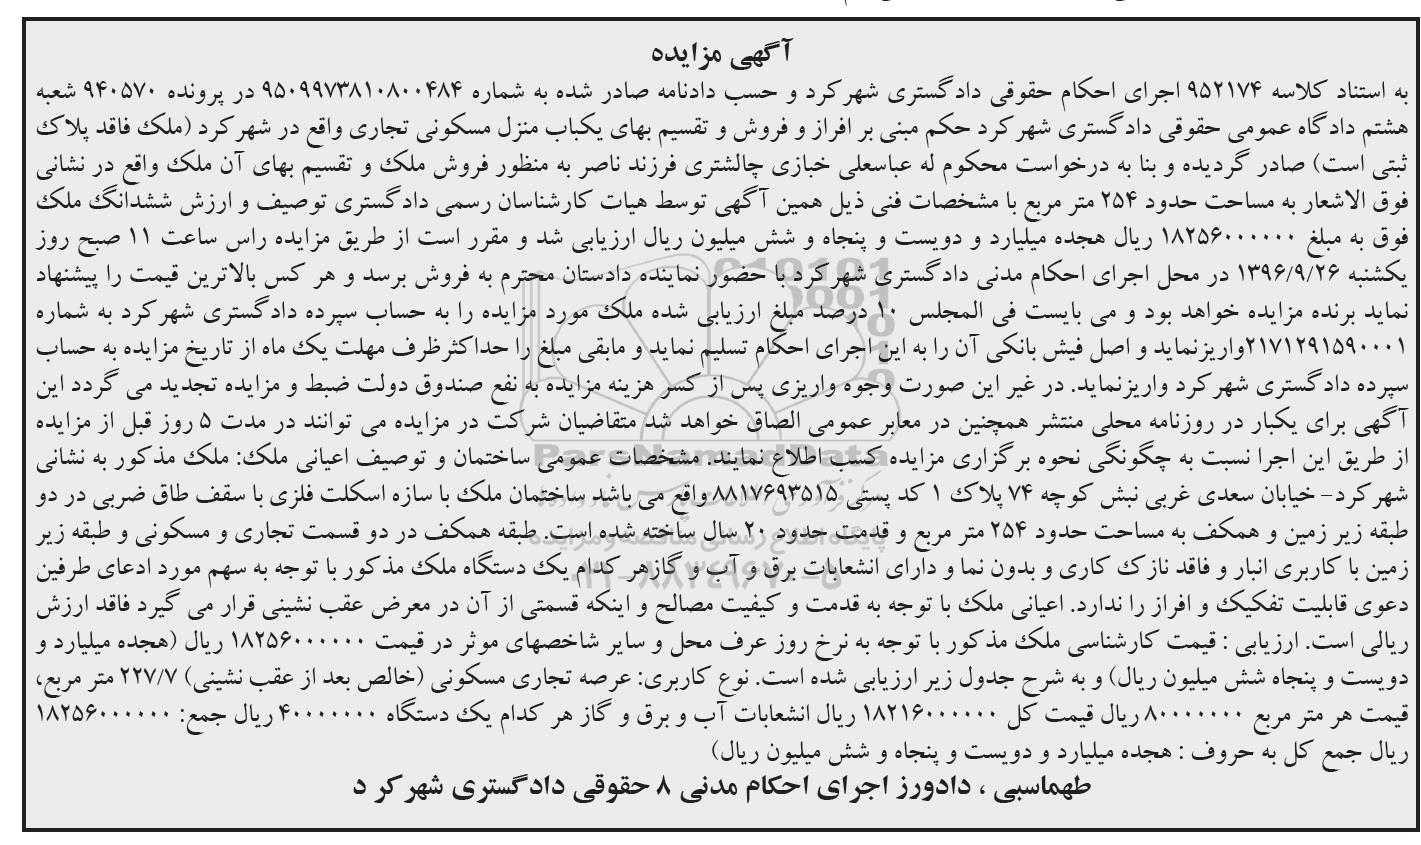 آگهی مزایده
به استناد کلاسه ۹۵۲۱۷۴ اجرای احکام حقوقی دادگستری شهرکرد و حسب دادنامه صادر شده به شماره ۹۵۰۹۹۷۳۸۱۰۸۰۰۴۸۴ در پرونده ۹۴۰۵۷۰ شعبه
هشتم دادگاه عمومی حقوقی دادگستری شهرکرد حکم مبنی بر افراز و فروش و تقسیم بهای یکباب منزل مسکونی تجاری واقع در شهرکرد (ملک فاقد پلاک
ثبتی است) صادر گردیده و بنا به درخواست محکوم له عباسعلی خبازی چالشتری فرزند ناصر به منظور فروش ملک و تقسیم بهای آن ملک واقع در نشانی
فوق الاشعار به مساحت حدود ۲۵۴ متر مربع با مشخصات فنی ذیل همین آگهی توسط هیات کارشناسان رسمی دادگستری توصیف و ارزش ششدانگ ملک
فوق به مبلغ ۱۸۲۵۶۰۰۰۰۰۰ ریال هجده میلیارد و دویست و پنجاه و شش میلیون ریال ارزیابی شد و مقرر است از طریق مزایده راس ساعت ۱۱ صبح روز
یکشنبه ۱۳۹۶/۹/۲۶ در محل اجرای احکام مدنی دادگستری شهرکرد با حضور نماینده دادستان محترم به فروش برسد و هر کس بالاترین قیمت را پیشنهاد
نماید برنده مزایده خواهد بود و می بایست فی المجلس ۱۰ درصد مبلغ ارزیابی شده ملک مورد مزایده را به حساب سپرده دادگستری شهرکرد به شماره
۲۱۷۱۲۹۱۵۹۰۰۰۱واریزنماید و اصل فیش بانکی آن را به این اجرای احکام تسلیم نماید و مابقی مبلغ را حداکثرظرف مهلت یک ماه از تاریخ مزایده به حساب
سپرده دادگستری شهرکرد واریزنماید. در غیر این صورت وجوه واریزی پس از کسر هزینه مزایده به نفع صندوق دولت ضبط و مزایده تجدید می گردد این
آگهی برای یکبار در روزنامه محلی منتشر همچنین در معابر عمومی الصاق خواهد شد متقاضیان شرکت در مزایده می توانند در مدت ۵ روز قبل از مزایده
از طریق این اجرا نسبت به چگونگی نحوه برگزاری مزایده کسب اطلاع نمایند. مشخصات عمومی ساختمان و توصیف اعیانی ملک: ملک مذکور به نشانی
شهرکرد- خیابان سعدی غربی نبش کوچه ۷۴ پلاک ۱ کد پستی ۸۸۱۷۶۹۳۵۱۵ واقع می باشد ساختمان ملک با سازه اسکلت فلزی با سقف طاق ضربی در دو
طبقه زیر زمین و همکف به مساحت حدود ۲۵۴ متر مربع و قدمت حدود ۲۰ سال ساخته شده است. طبقه همکف در دو قسمت تجاری و مسکونی و طبقه زیر
زمین با کاربری انبار و فاقد نازک کاری و بدون نما و دارای انشعابات برق و آب و گازهر کدام یک دستگاه ملک مذکور با توجه به سهم مورد ادعای طرفین
دعوی قابلیت تفکیک و افراز را ندارد. اعیانی ملک با توجه به قدمت و کیفیت مصالح و اینکه قسمتی از آن در معرض عقب نشینی قرار می گیرد فاقد ارزش
ریالی است. ارزیابی : قیمت کارشناسی ملک مذکور با توجه به نرخ روز عرف محل و سایر شاخصهای موثر در قیمت ۱۸۲۵۶۰۰۰۰۰۰ ریال (هجده میلیارد و
دویست و پنجاه شش میلیون ریال) و به شرح جدول زیر ارزیابی شده است. نوع کاربری: عرصه تجاری مسکونی (خالص بعد از عقب نشینی) ۲۲۷/۷ متر مربع،
قیمت هر متر مربع ۸۰۰۰۰۰۰۰ ریال قیمت کل ۱۸۲۱۶۰۰۰۰۰۰ ریال انشعابات آب و برق و گاز هر کدام یک دستگاه ۴۰۰۰۰۰۰۰ ریال جمع: ۱۸۲۵۶۰۰۰۰۰۰
ریال جمع کل به حروف : هجده میلیارد و دویست و پنجاه و شش میلیون ریال)
طهماسبی ، دادورز اجرای احکام مدنی ۸ حقوقی دادگستری شهرکر د
ParsNamadData
پایگاه اطلاع رسانی مناقصه و مزایده